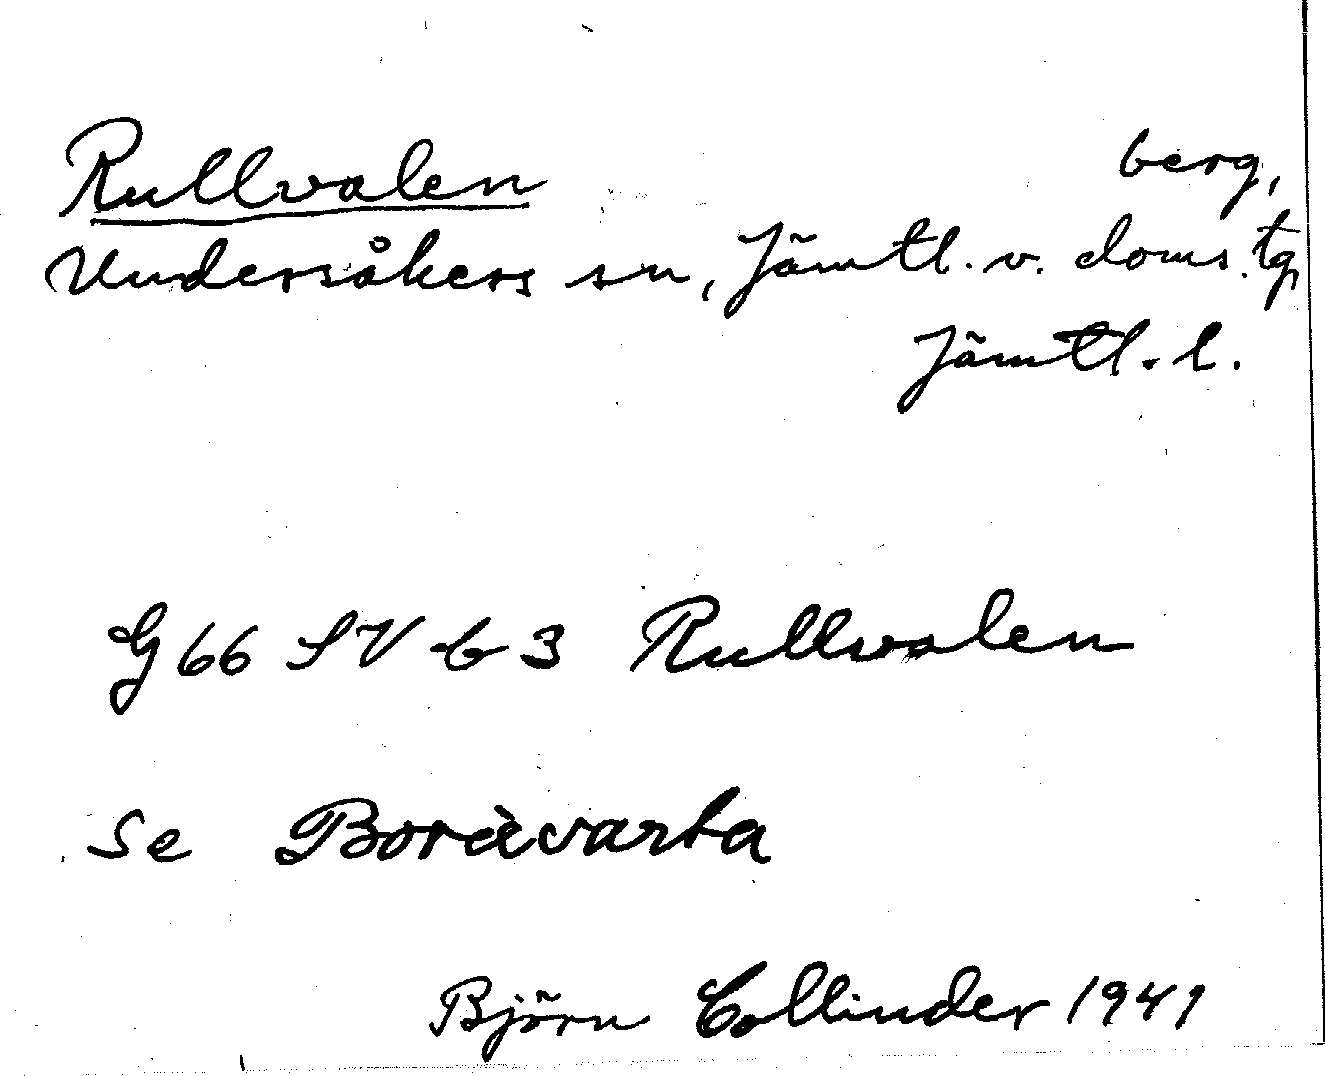 Rullvalen berg,
Undersåkers sn, Jämtl. v. doms. tg,
Jämtl. l.
G 66 SV b 3 Rullvalen
Se
Björn Collinder 1941